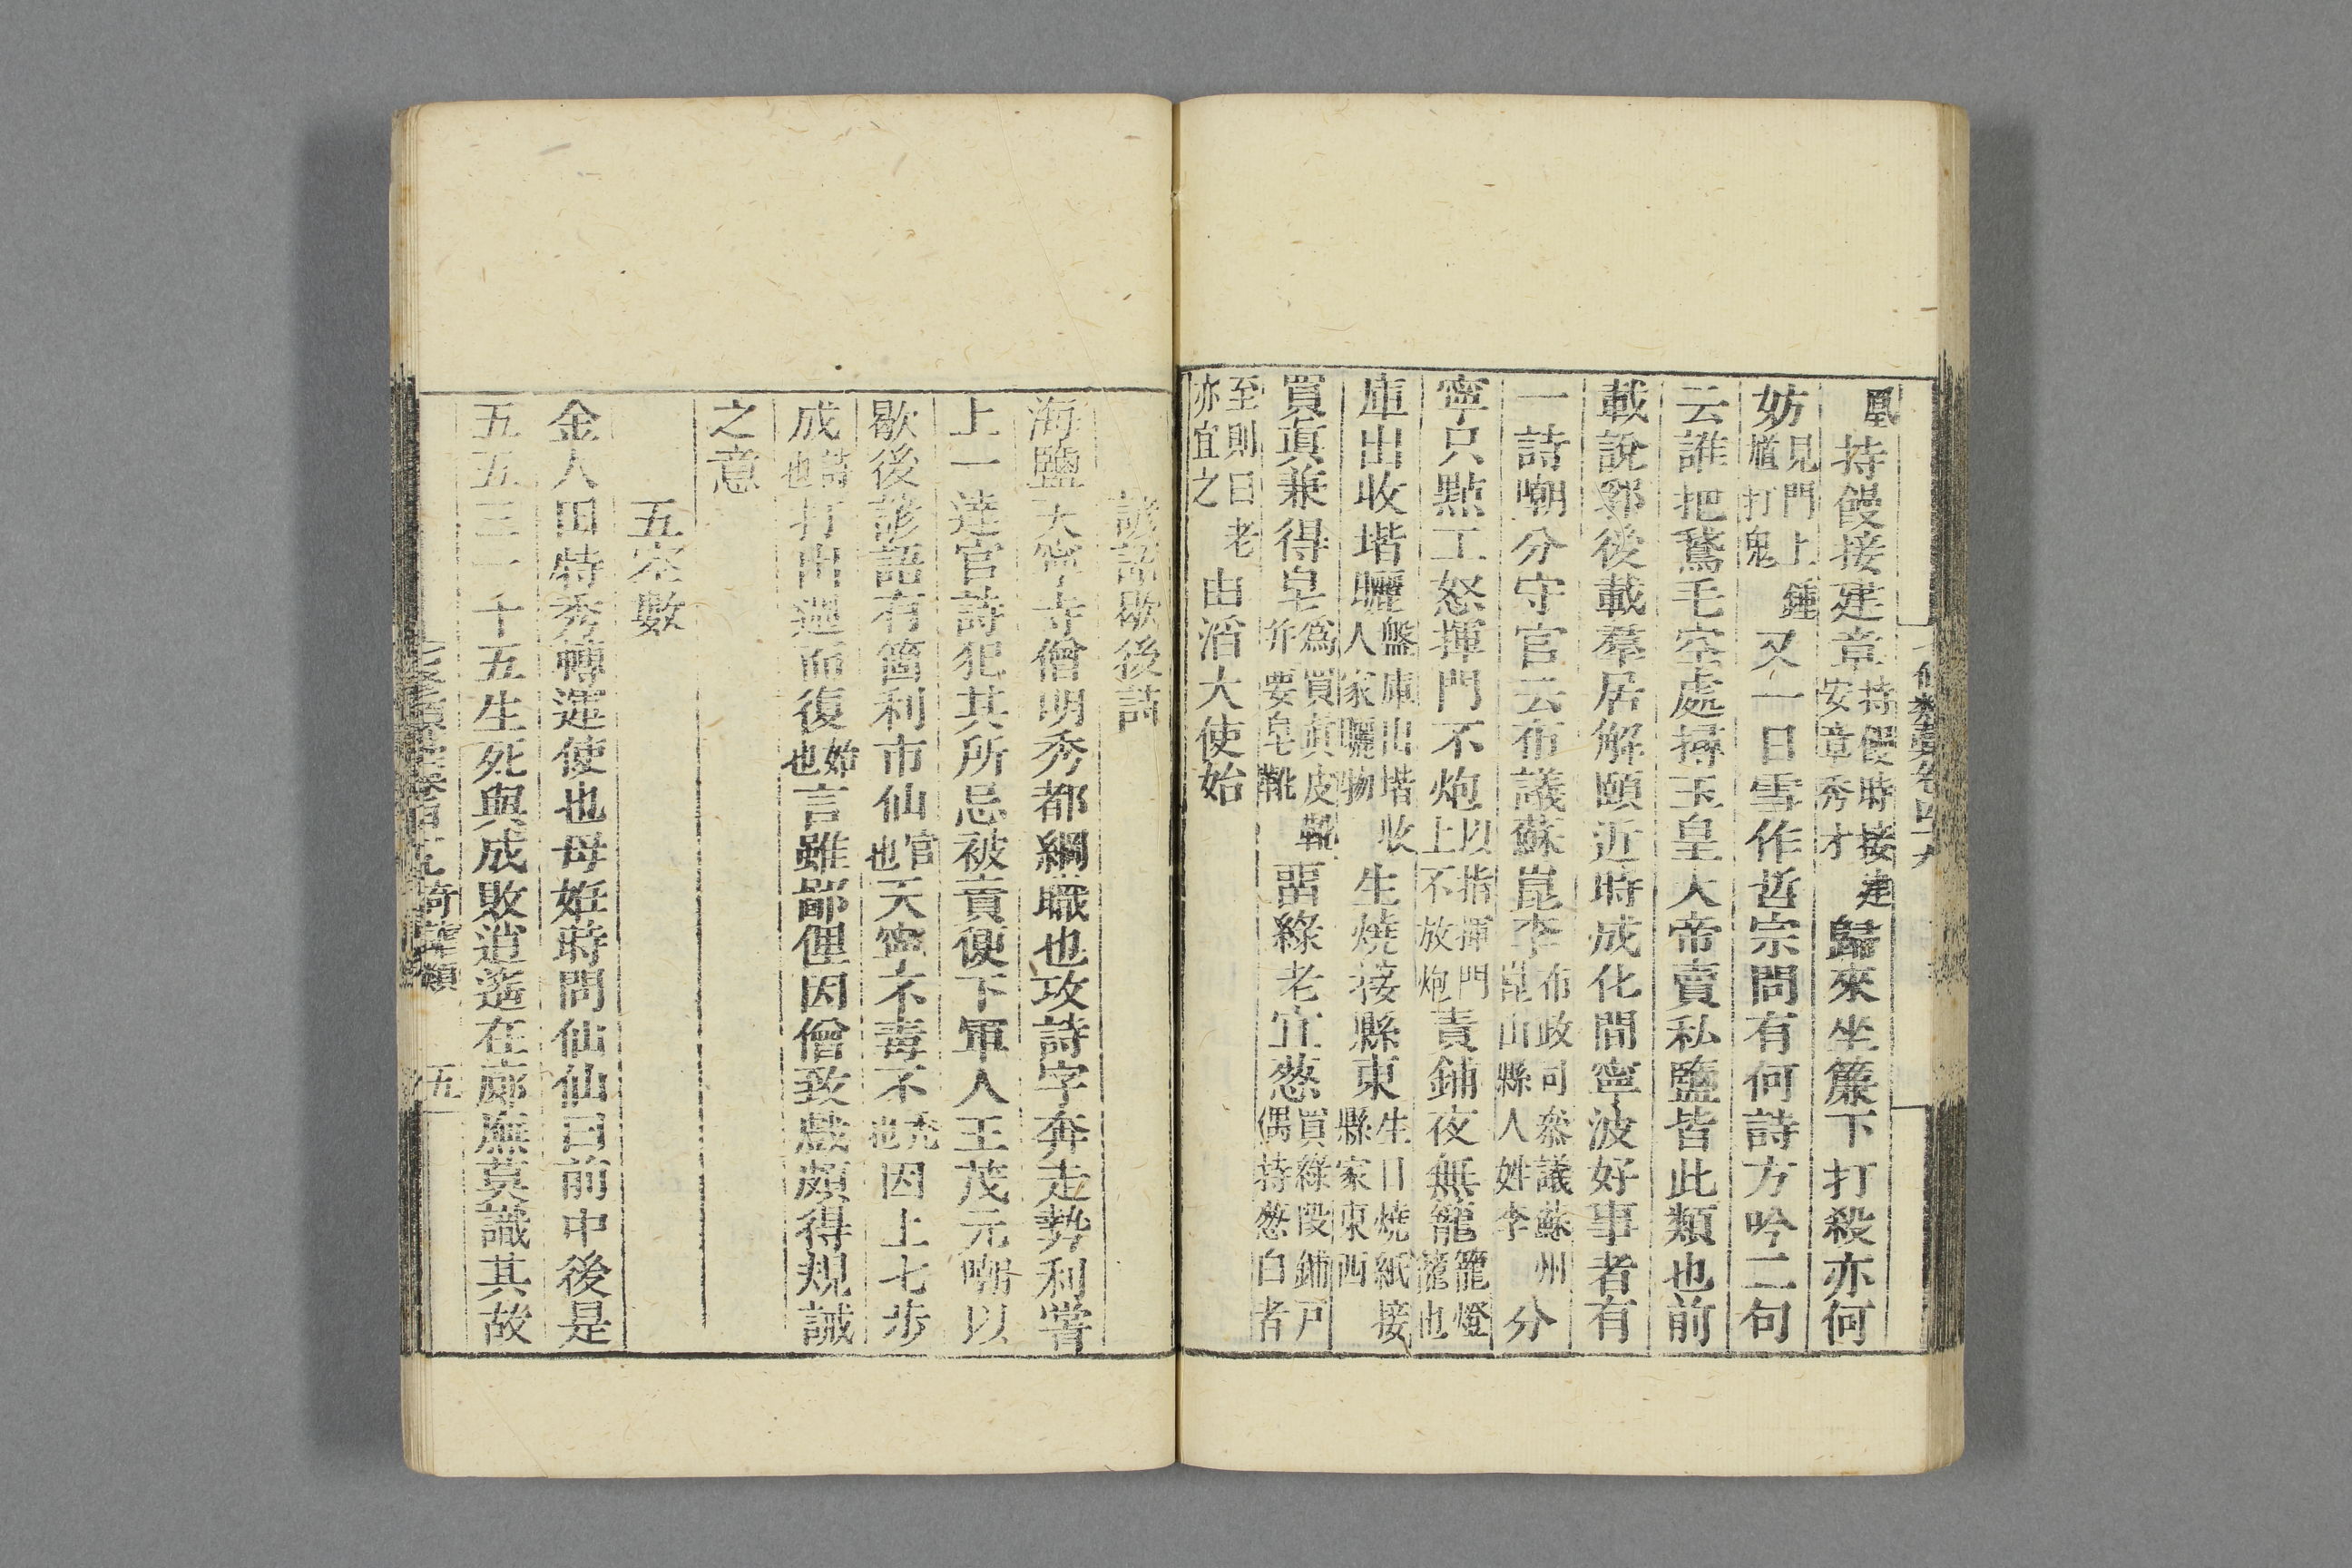 七修類藁卷四十九
凰持饅接建章持饅時接建安章秀才歸來坐簾下打殺亦何
妨見門上鍾馗打鬼又一日雪作哲宗問有何詩方吟二句
云誰把鵞毛空處撏玉皇大帝賣私鹽皆此類也前
載說郛後載羣居解頤近時成化間寧波好事者有
一詩嘲分守官云布議蘇崑李布政司叅議蘇州崑山縣人姓李分
寧只點工怒揮門不炮以指揮門上不放炮責鋪夜無籠籠燈籠也
庫出收堦曬盤庫出堦收人家曬物生燒接縣東生日燒紙接縣家東西
買眞兼得皂爲買眞皮靴并要皂靴畱綠老宜葱買綠段鋪戸偶持葱白者
至則曰老亦宜之由滔大使始
諺語歇後詩
海鹽天寧寺僧明秀都綱職也攻詩字奔走勢利嘗
上一達官詩犯其所忌被責便下軍人王茂元嘲以
歇後諺語有箇利市仙官也天寧不毒不禿也因上七步
成詩也打出迴而復始也言雖鄙俚因僧致戲頗得規誡
之意
五來數
金人田特秀轉運使也母姙時問仙仙曰前中後是
五五三一十五生死與成敗逍遙在廊廡莫識其故
奇謔類
五